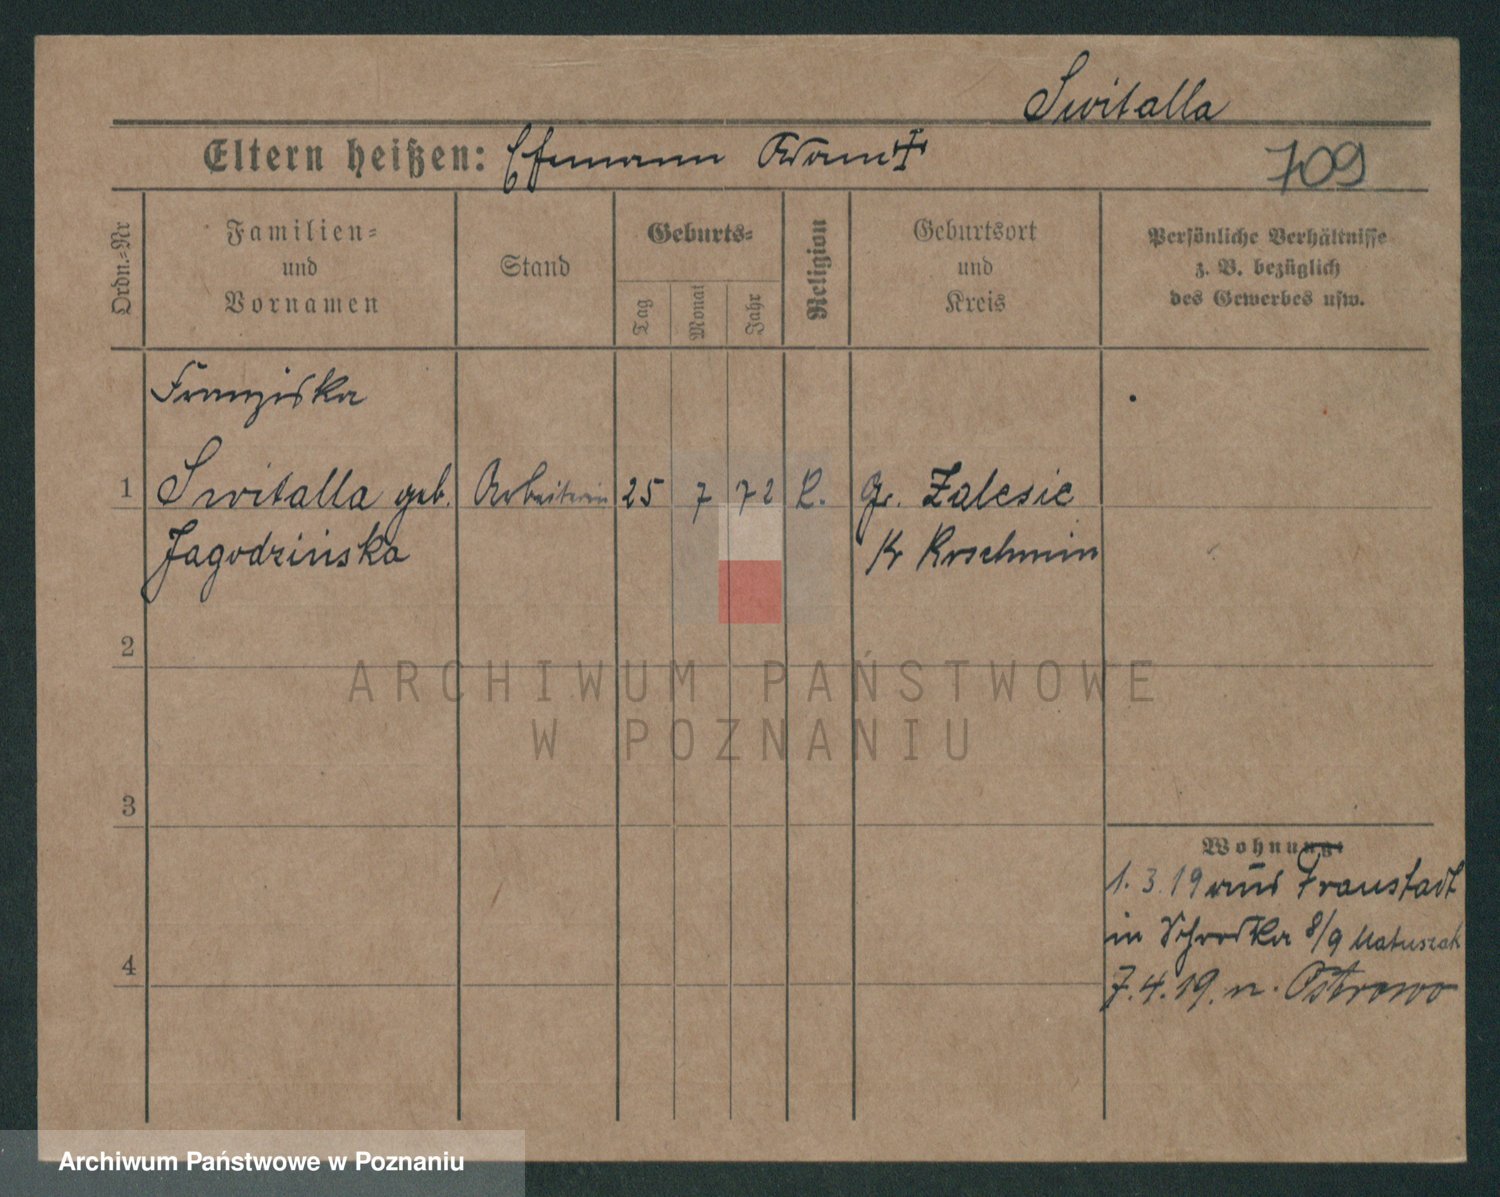 Switalla
Eltern heißen: Ehemann Adam †
709
Ordn.-Nr
Familien-
und
Vornamen
Stand
Geburts-
Tag
Monat
Jahr
Religion
Geburtsort
und
Kreis
Persönliche Verhältnisse
z. B. bezüglich
des Gewerbes usw.
Franziska
1 Switalla geb. Arbeiterin 25 7 72 k. Gr. Zalesie
Jagodzińska Kr Koschmin
2
3
4
Wohnung:
1. 3. 19 aus Fraustadt
in Schrodka 8/9 Matuszak
7. 4. 19. n. Ostrowo
ARCHIWUM PAŃSTWOWE
W POZNANIU
Archiwum Państwowe w Poznaniu